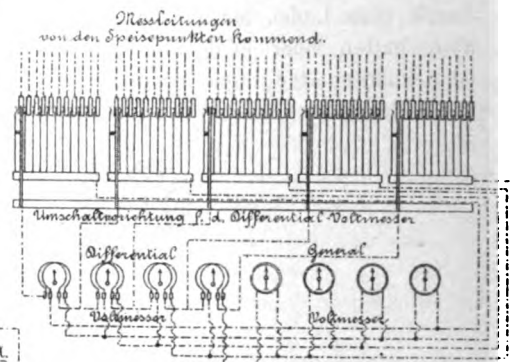 Messleitungen
von den Speisepunkten kommend.
Umschaltvorrichtung f. d. Differential-Voltmesser
Differential
General
Voltmesser
Voltmesser